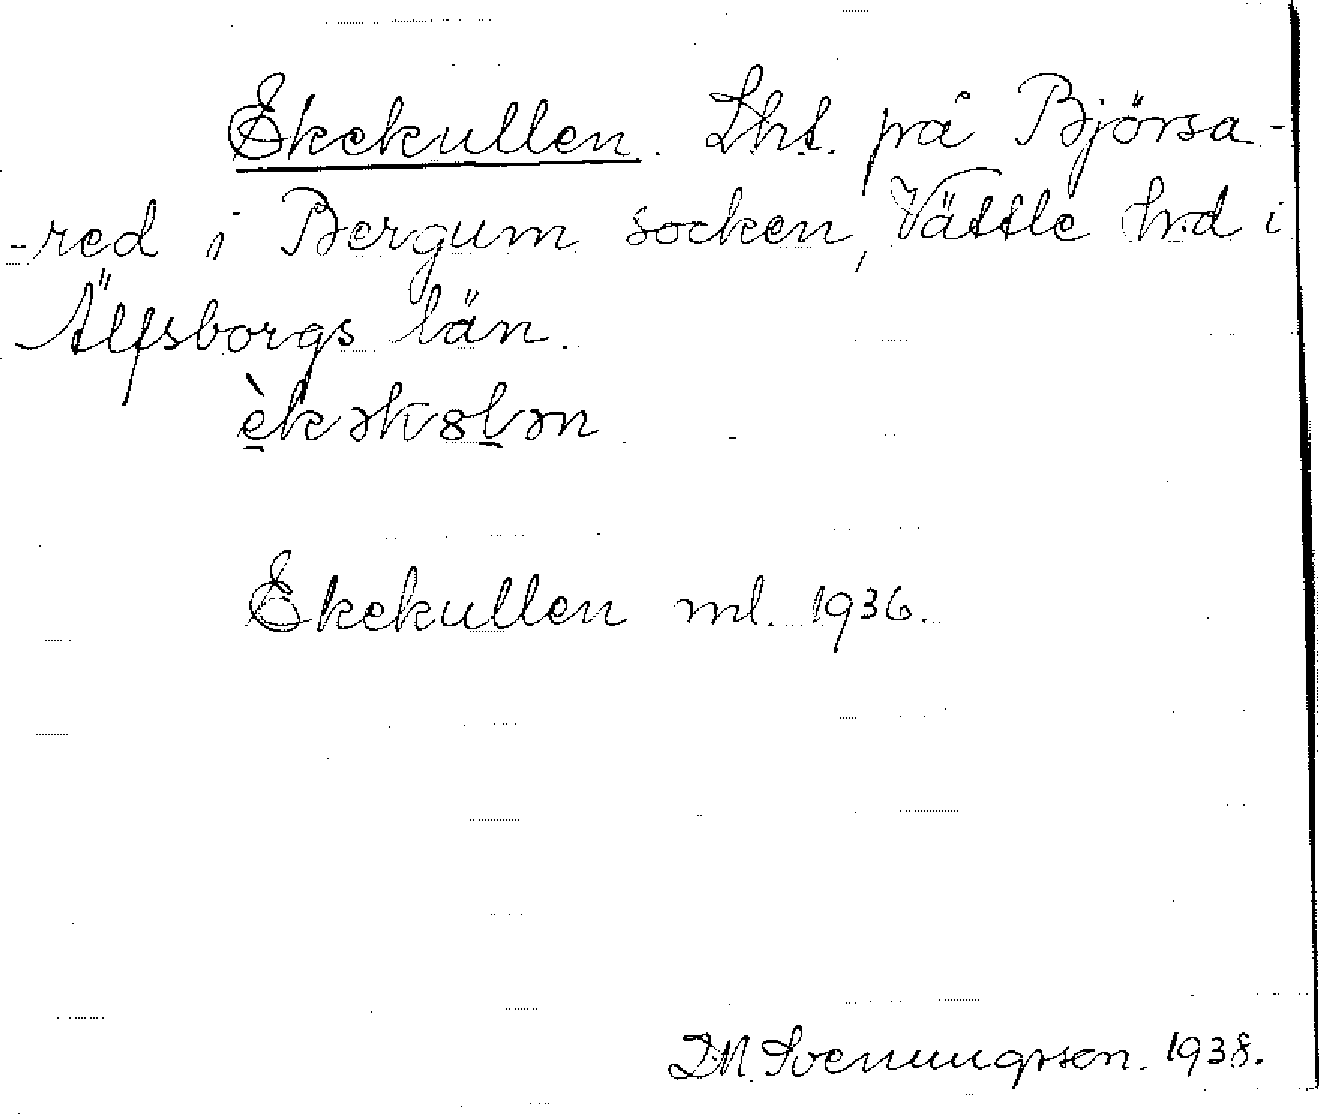 Ekekullen. Lht. på Björsa-
-red i Bergum socken, Vättle hrd i
Älfsborgs län.
Ekekullen ml. 1936.
D.M. Svenungsson. 1938.